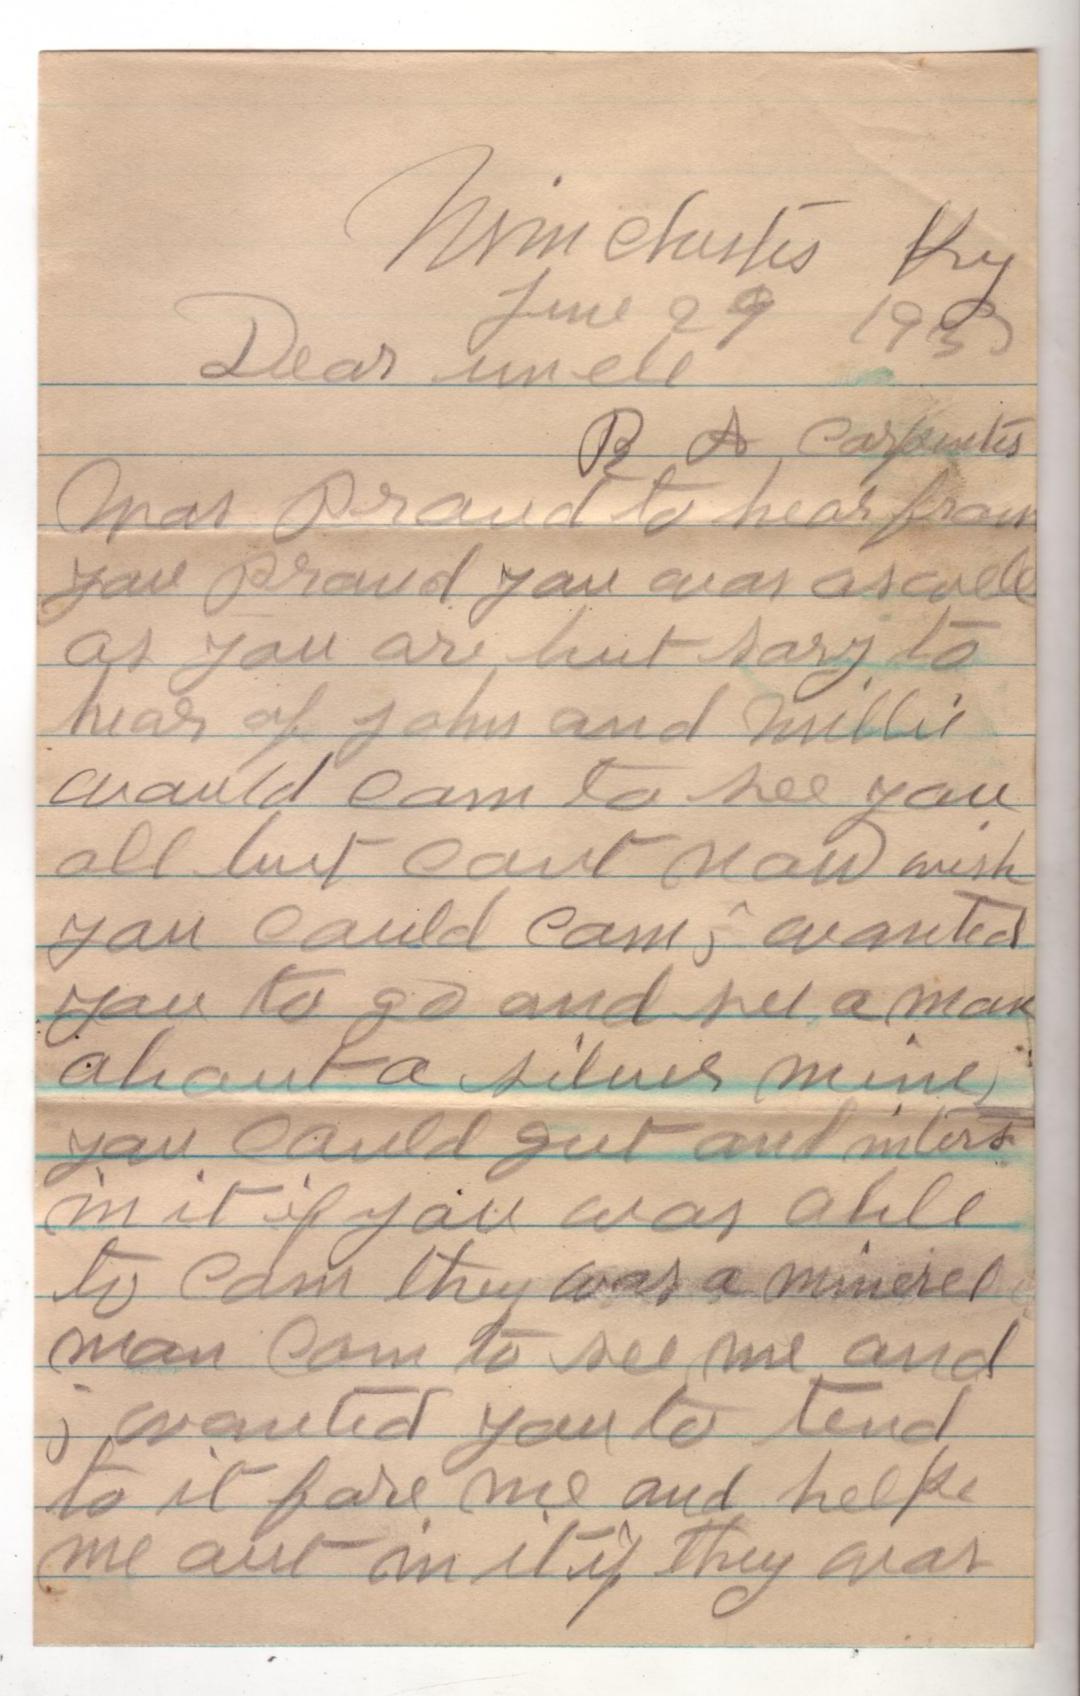 Winchester Ky
June 29 1933
Dear uncle
R A Carpenter
was Praud to hear from
you Praud you was as well
as you are but sory to
hear of John and Millie
would com to see you
all but cant now wish
you could com i wanted
you to go and see a man
about a silver mine
you could get and inters
in it if you was able
to com they was a minerel
man com to see me and
i wanted you to tend
to it fore me and helpe
me out in it if they was